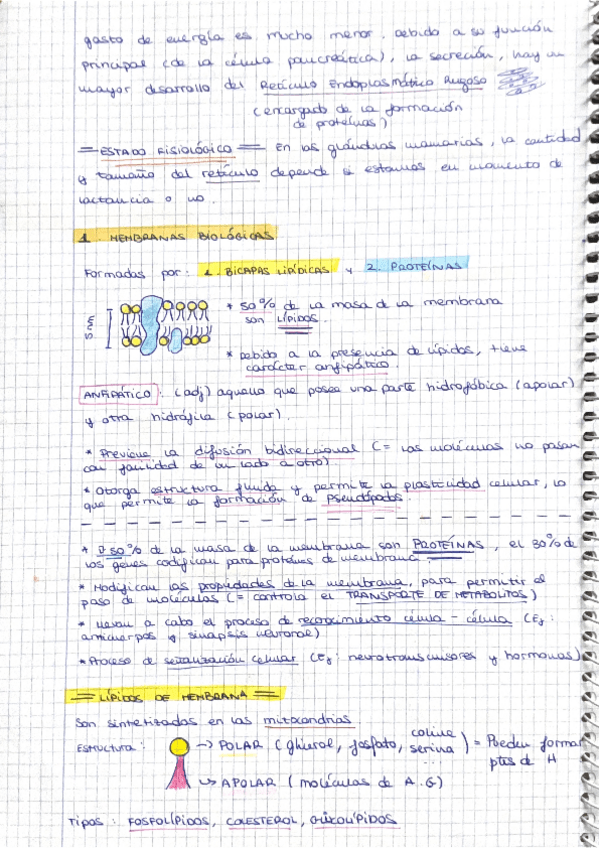 gasto de energía es mucho menor. Debido a su función
principal (de la célula pancreática), la secreción, hay un
mayor desarrollo del Retículo Endoplasmático Rugoso
(encargado de la formación
de proteínas)
= ESTADO FISIOLÓGICO = En las glándulas mamarias, la cantidad
y tamaño del retículo depende si estamos en momento de
lactancia o no.
1. MEMBRANAS BIOLÓGICAS
Formadas por: 1. BICAPAS LIPÍDICAS y 2. PROTEÍNAS
5 nm
* 50% de la masa de la membrana
son LÍPIDOS.
* Debido a la presencia de lípidos, tiene
carácter anfipático.
ANFIPÁTICO: (adj) aquello que posea una parte hidrofóbica (apolar)
y otra hidrófila (polar).
* Previene la difusión bidireccional (= las moléculas no pasan
con facilidad de un lado a otro)
* Otorga estructura fluida y permite la plasticidad celular, lo
que permite la formación de Pseudópodos.
* 50% de la masa de la membrana son PROTEÍNAS, el 30% de
los genes codifican para proteínas de membrana.
* Modifican las propiedades de la membrana, para permitir el
paso de moléculas (= controla el TRANSPORTE DE METABOLITOS)
* Llevan a cabo el proceso de reconocimiento célula - célula (Ej:
anticuerpos y sinapsis neuronal)
* Proceso de señalización celular (Ej: neurotransmisores y hormonas)
= LÍPIDOS DE MEMBRANA =
Son sintetizadas en las mitocondrias
ESTRUCTURA: → POLAR (glicerol, fosfato, colina, serina ...) = Pueden formar
ptes de H
↳ APOLAR (moléculas de A.G)
Tipos: FOSFOLÍPIDOS, COLESTEROL, GLICOLÍPIDOS